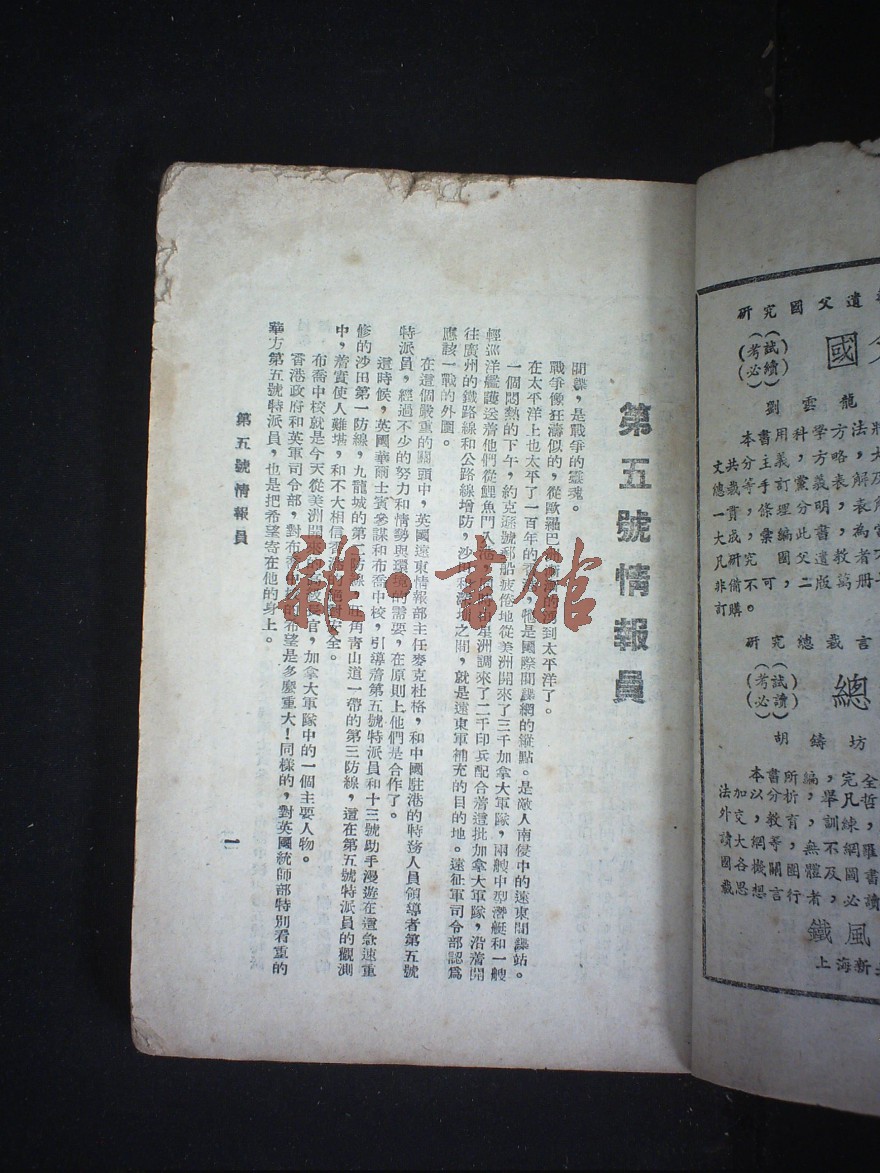 第五號情報員
間諜，是戰爭的靈魂。
戰爭像狂濤似的，從歐羅巴
到太平洋了。
在太平洋上也太平了一百年的香
牠是國際間諜網的縱點。是敵人南侵中的遠東間諜站。
一個悶熱的下午，約克遜號郵船疲倦地從美洲開來了三千加拿大軍隊，兩艘中型潛艇和一艘
輕巡洋艦護送着他們從鯉魚門入
星洲調來了二千印兵配合着這批加拿大軍隊，沿着開
往廣州的鐵路線和公路線增防，沙田
之間，就是遠東軍補充的目的地。遠征軍司令部認爲
應該一戰的外圍。
在這個嚴重的關頭中，英國遠東情報部主任麥克杜格，和中國駐港的特務人員領導者第五號
特派員，經過不少的努力和情勢與環境的需要，在原則上他們是合作了。
這時候，英國華爾士賓參謀和布喬中校，引導着第五號特派員和十三號助手漫遊在這急速重
修的沙田第一防線，九龍城的第二防線，旺角青山道一帶的第三防線，這在第五號特派員的觀測
中，着實使人難堪，和不大相信香
安全。
布喬中校就是今天從美洲開來的
官，加拿大軍隊中的一個主要人物。
香港政府和英軍司令部，對布喬
希望是多麼重大！同樣的，對英國統帥部特別看重的
華方第五號特派員，也是把希望寄在他的身上。
第五號情報員
一
雜·書館
研究國父遺
（考試必讀）
國父
劉雲龍
本書用科學方法將
文共分主義，方略，大
總裁等手訂黨義表解及
一貫，條理分明，表
大成，彙編此書，爲
凡研究 國父遺教者不
非備不可，二版萬册
訂購。
研究總裁言
（考試必讀）
總
胡鑄坊
本書所編，完全
法加以分析，舉凡哲
外交，教育，訓練，
讀大網等，無不網羅
國各機關團體及圖書
裁思想言行者，必讀
鐵風
上海新